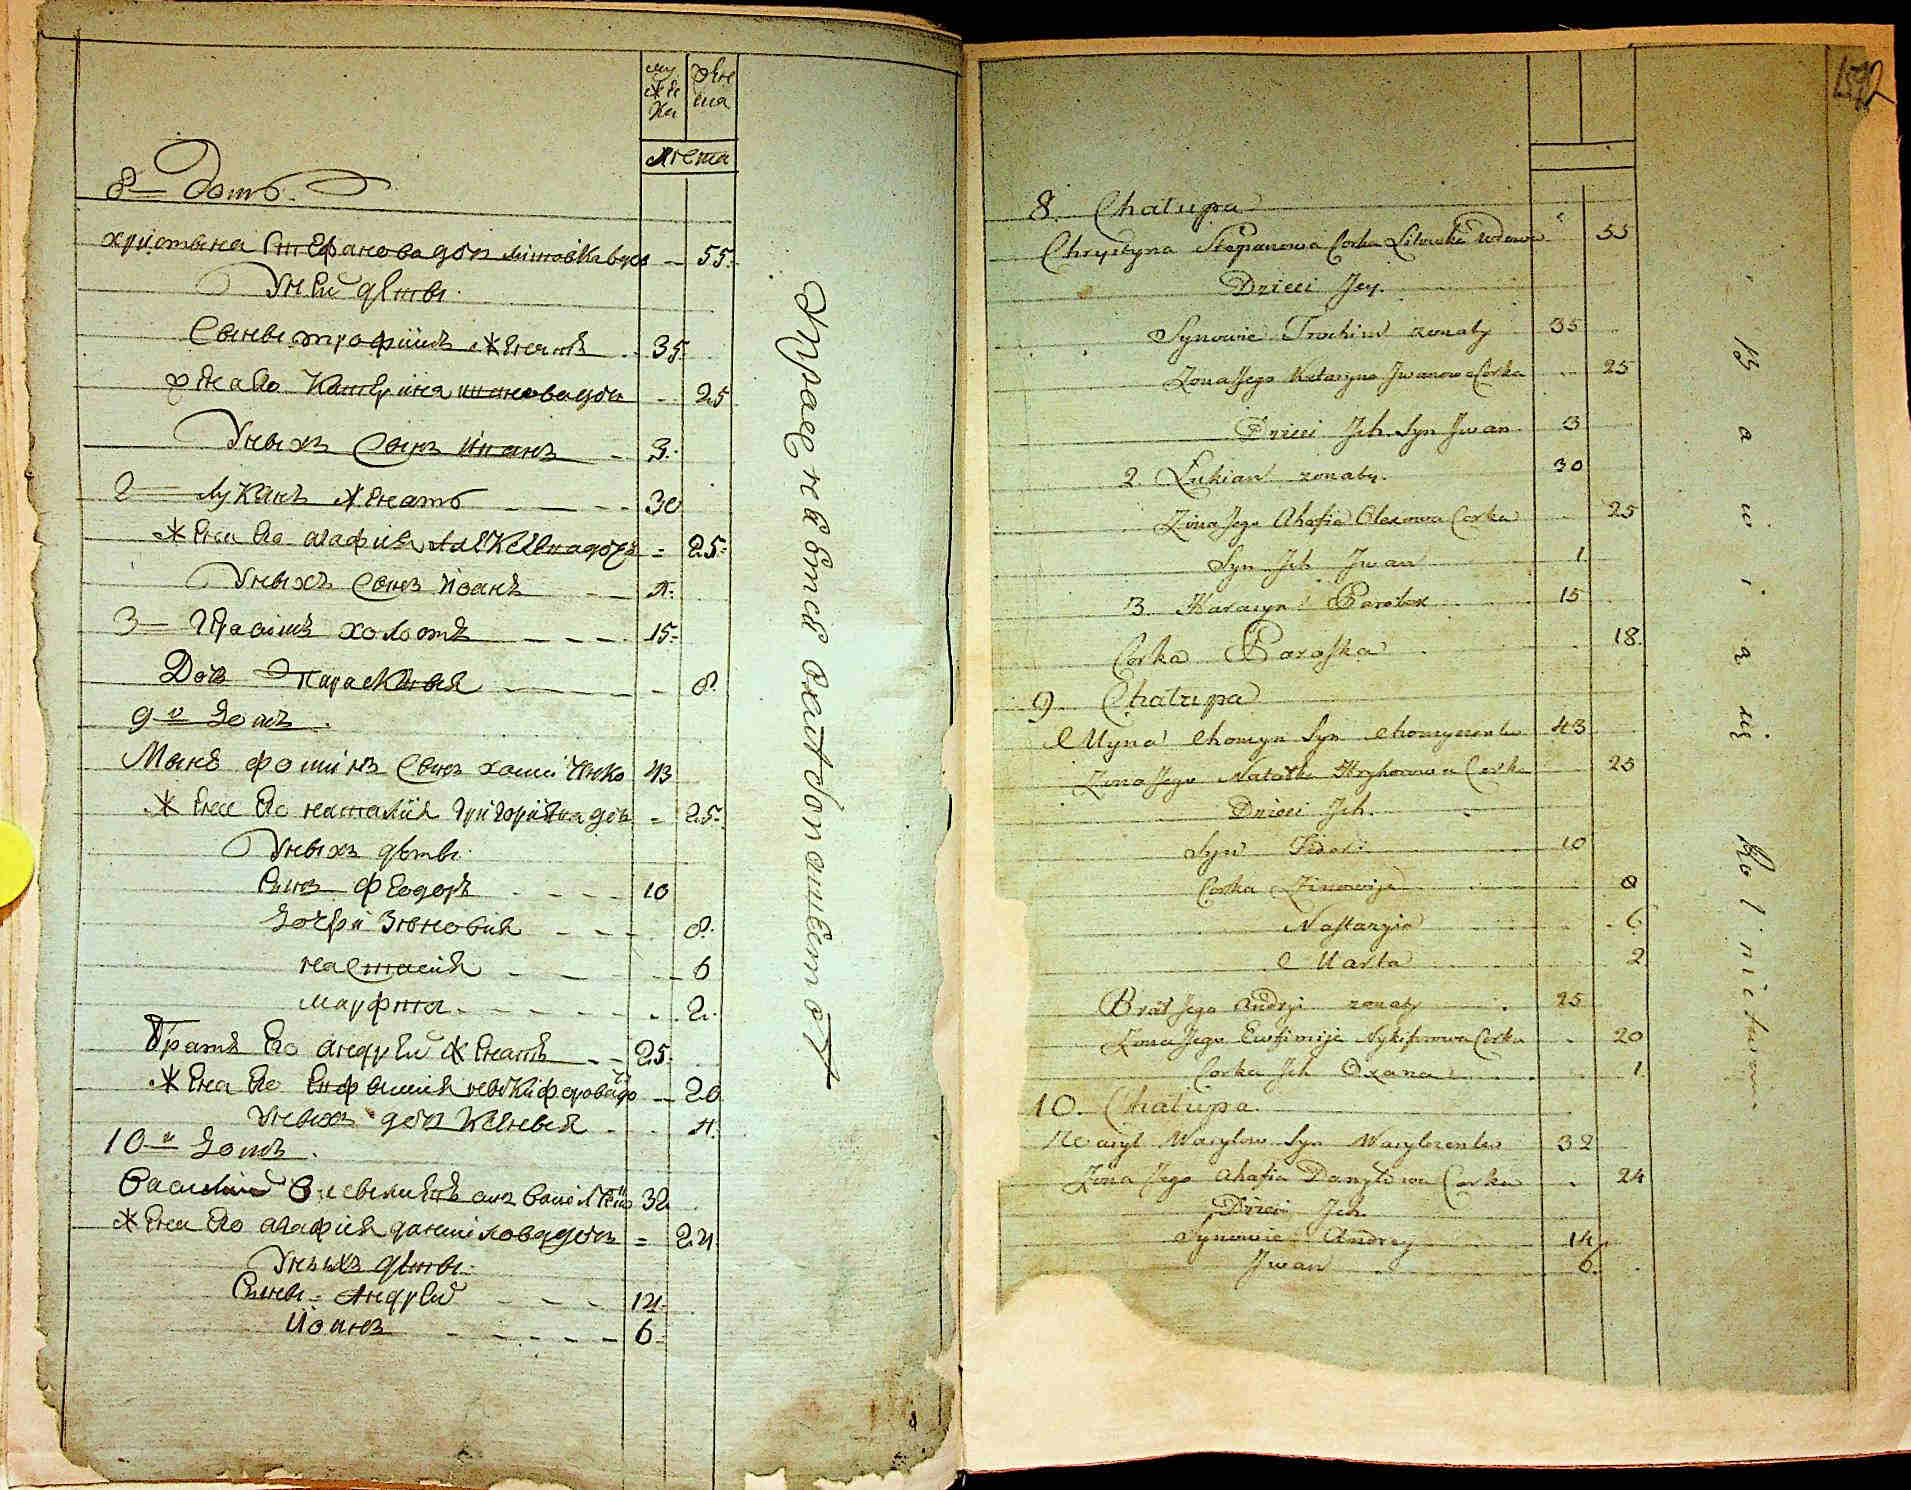 мужеска
женска
лета
8 Домъ.
христина Стефанова дочь литовка вдо — 55
У ней дѣти
Сыны трофимъ женатъ 35
жена его Катерина иванова дочь 25
У ных сынъ иванъ 3
2 — лукянъ женатъ 30
жена его агафия алексеева дочъ = 25
У ных сынъ иванъ 1
3 — Герасимъ холостъ 15
Дочь параскивия 8
9 й домъ
Мина фоминъ сынъ хоминко 43
жена его наталия григориева дочь = 25
У ныхъ дѣти
Сынъ феодоръ 10
дочери Зѣновия 8
настасия 6
марфита 2
братъ его андрей женатъ 25
жена его евфимия невкифорова до 20
у ныхъ дочь ксения 1
10 й домъ
Василий сынъ 32
жена его агафия данилова дочь = 24
У ныхъ дѣти
Сыны андрей 14
иванъ 6
Упражняется в хлебопашестве
8. Chałupa
Chrystyna Stepanowa Corka Litowka wdowa 55
Dzieci Jey
Synowie Trochim zonaty 35
Zona Jego Kataryna Jwanowa Corka 25
Dzieci Jch Syn Jwan 3
2. Łukian zonaty 30
Zona Jego Ahafia Olexowa Corka 25
Syn Jch Jwan 1
3. Harasym Parobox 15
Corka Paraska 18
9. Chałupa
Myna Chomyn Syn Chomyczenko 43
Zona Jego Natałka Hryhorowa Corka 25
Dzieci Jch
Syn Fidor 10
Corka Zinowija 8
Nastazyia 6
Marta 2
Brat Jego Andrzy zonaty 25
Zona Jego Ewfimija Nykiforowa Corka 20
Corka Jch Oxana 1
10. Chałupa
Wasyl Wasylow Syn Wasylczenko 32
Zona Jego Ahafia Danyłowa Corka 24
Dzieci Jch
Synowie Andrey 14
Jwan 6
zabawiaią Rolnictwem